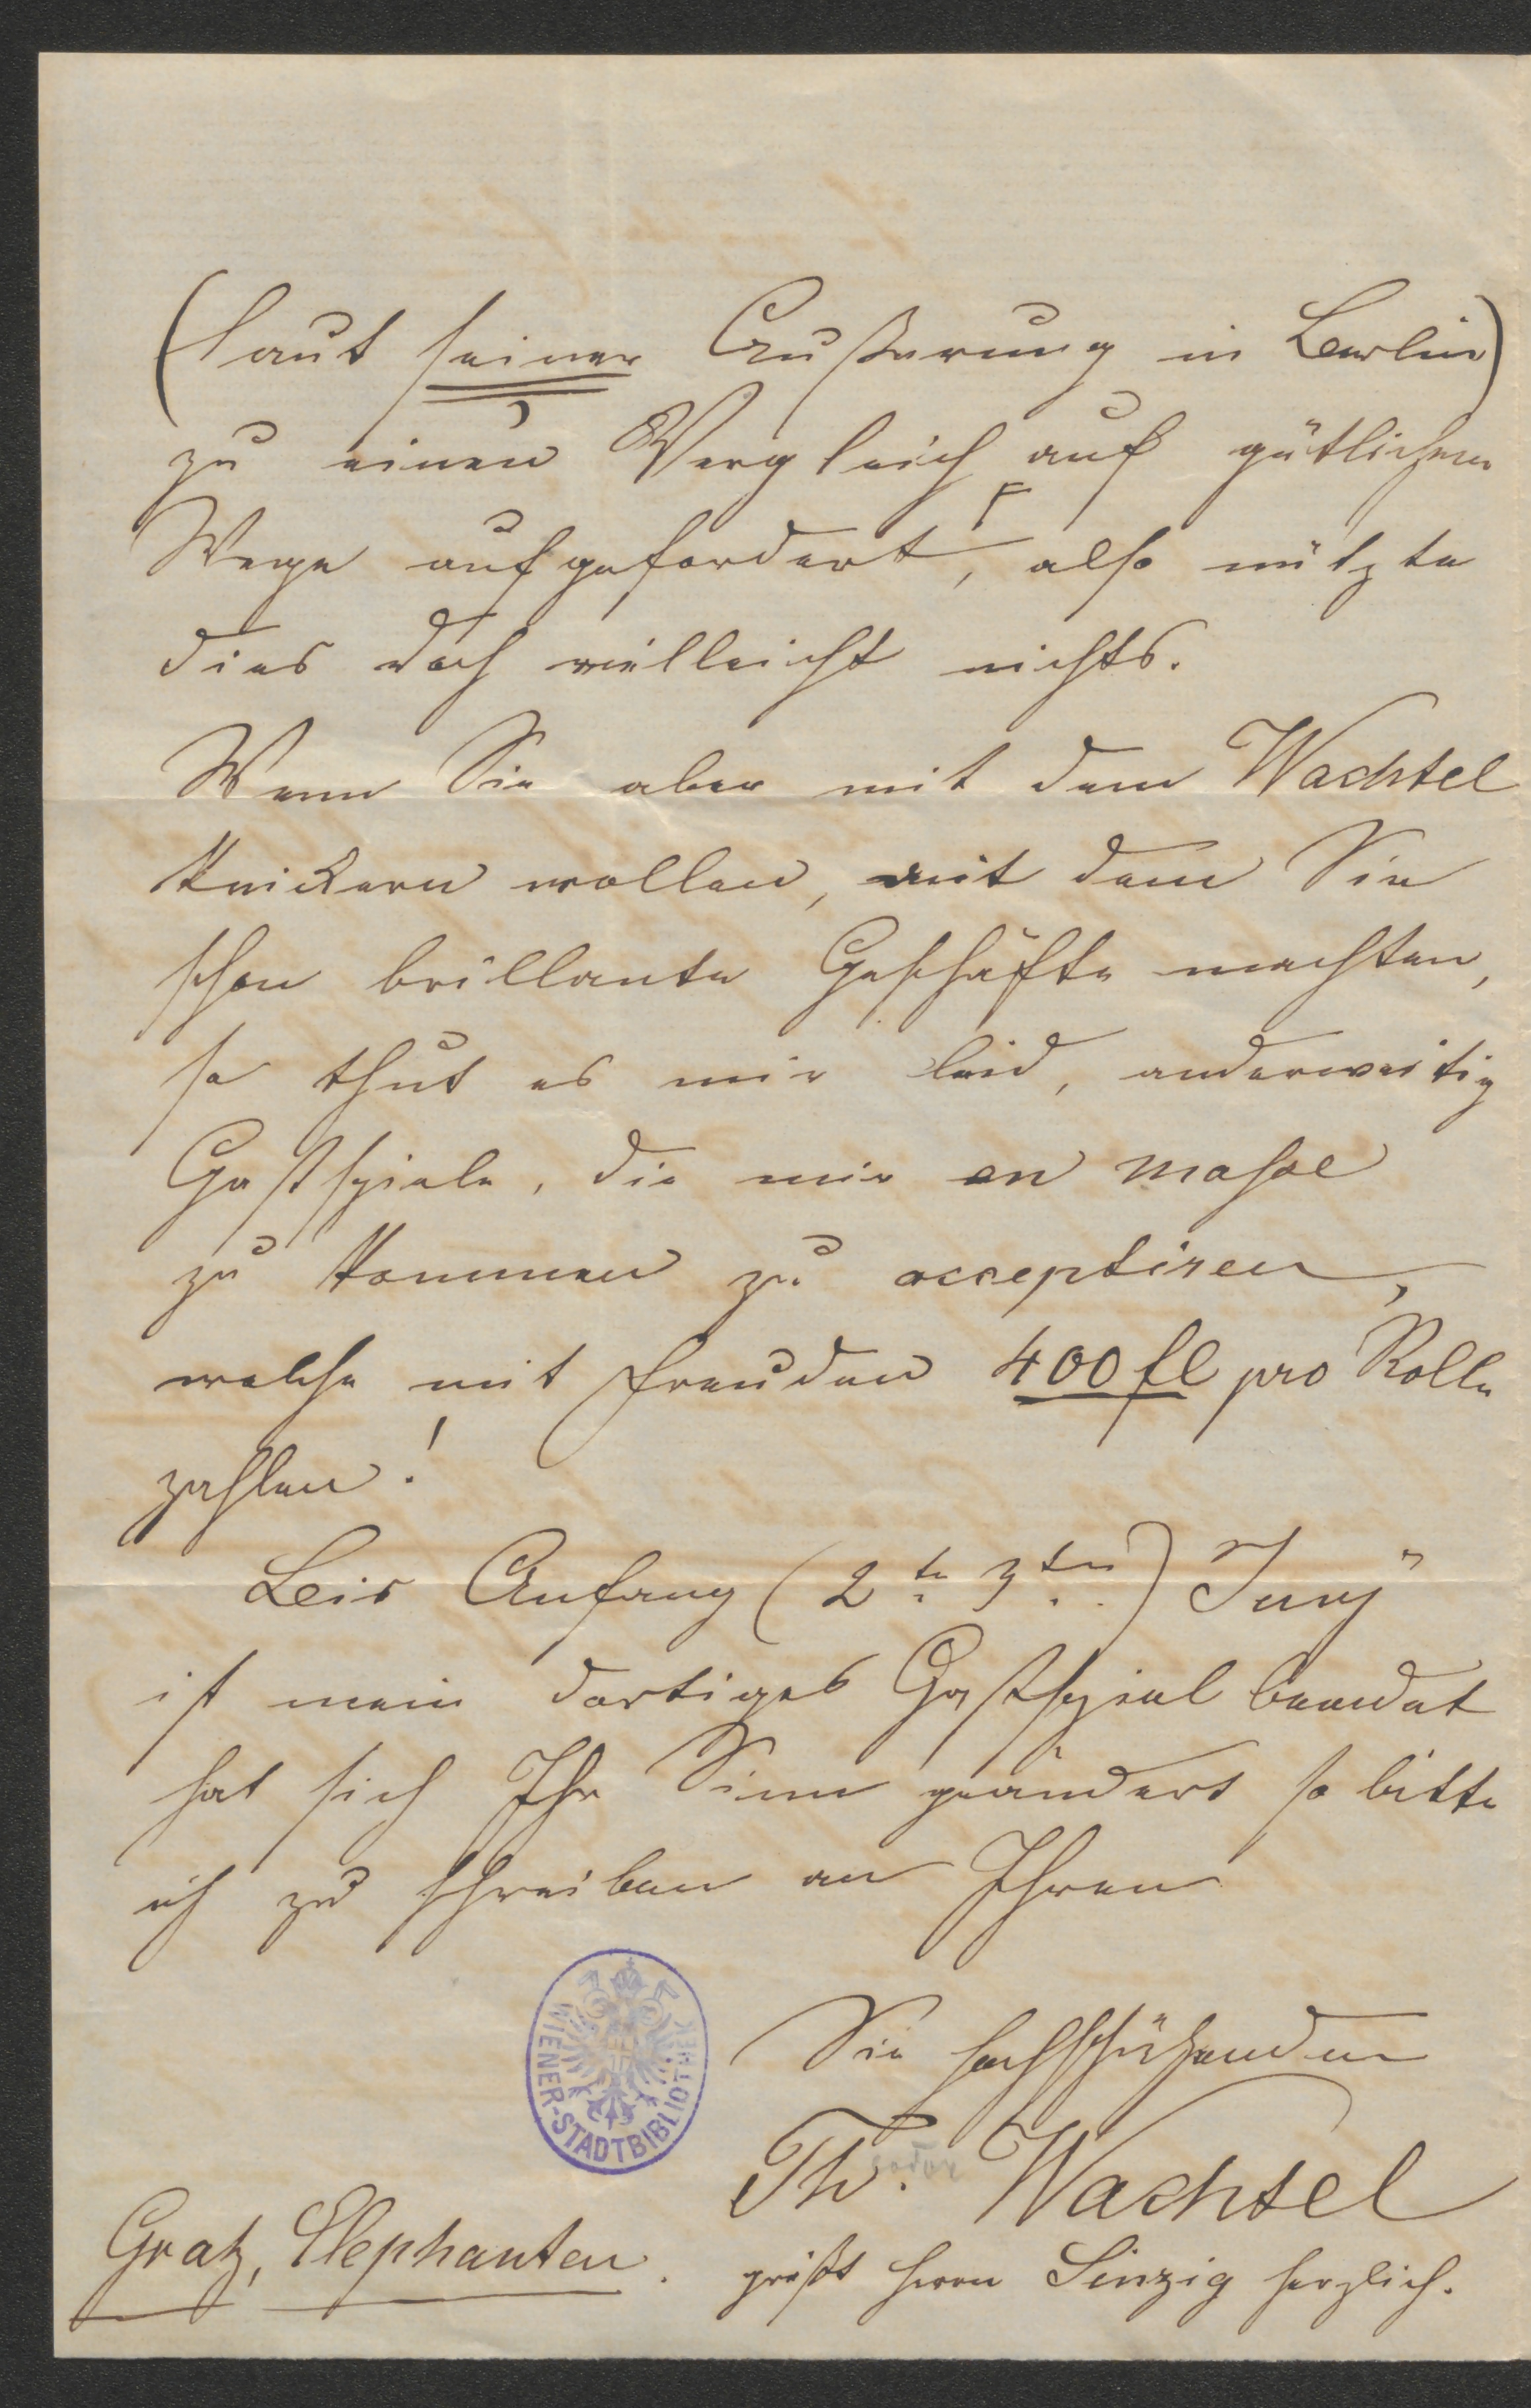 (laut seiner Äußerung in Berlin)
zu einen Vergleich auf gütlichem
Wege aufgefordert, also nützte
dies doch vielleicht nichts.
Wenn Sie aber mit dem Wachtel
knickern wollen, mit dem Sie
schon brillante Geschäfte machten,
so thut es mir leid, anderweitig
Gastspiele, die mir en masse
zu kommen zu acceptiren,
welche mit Freuden 400 fl pro Rolle
zahlen!
Bis Anfang (2te 3ten) Juny
ist mein dortiges Gastspiel beendet
hat sich Ihr Sinn geändert so bitte
ich zu schreiben an Ihren
Sie hochschätzenden
Th. Wachtel
grüßt Herrn Sinzig herzlich.
Gratz, Elephanten.
WIENER-STADTBIBLIOTHEK